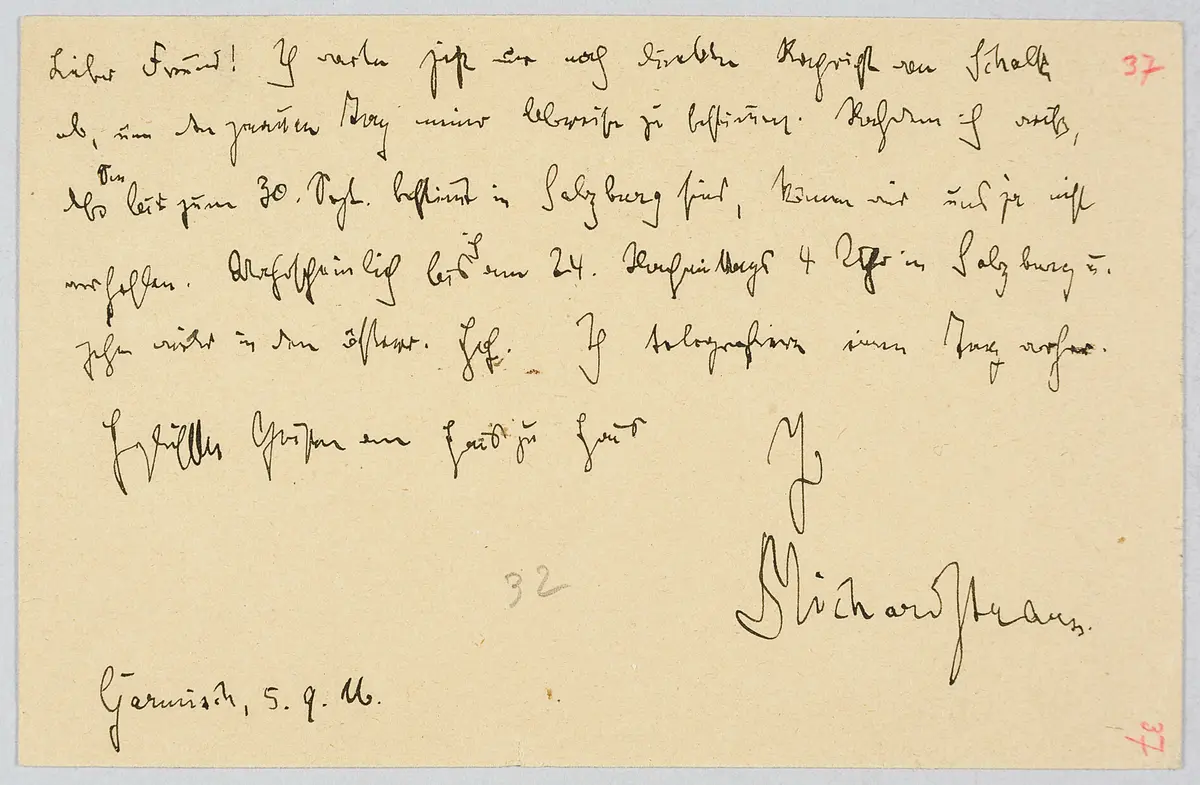 Lieber Freund! Ich warte jetzt nur noch direkte Nachricht von Schalk
37
ab, um den genauen Tag meiner Abreise zu bestimmen. Nachdem ich weiß,
daß Sie bis zum 30. Sept. bestimmt in Salzburg sind, können wir uns ja nicht
verfehlen. Wahrscheinlich bin ich am 24. Nachmittags 4 Uhr in Salzburg u.
gehe wieder in den österr. Hof. Ich telegrafiere einen Tag vorher.
Herzlichste Grüßen von Haus zu Haus
Ihr
Richard Strauss.
32
Garmisch, 5. 9. 16.
37